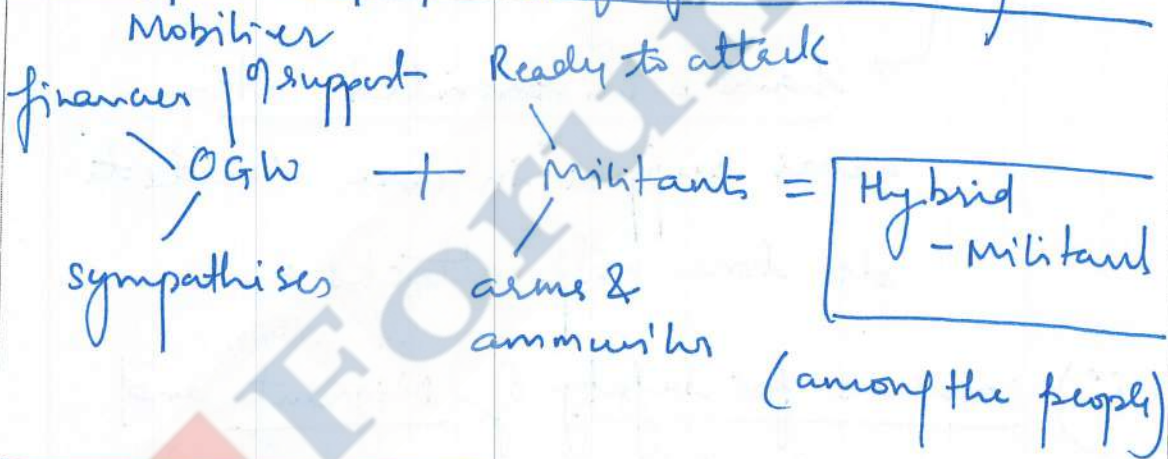 Mobiliser
financier of support Ready to attack
OGW + Militants = Hybrid
- Militant
sympathiser arms &
ammunition
(among the people)
Forum